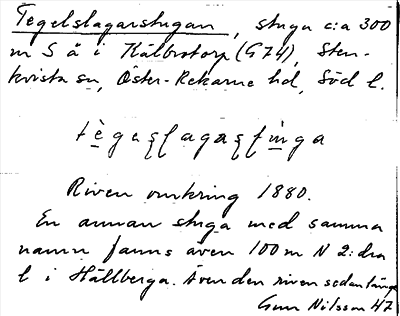 Tegelslagarstugan, stuga c:a 300
m S å i Kälbrotorp (G74), Sten-
kvista sn, Öster-Rekarne hd, Södl.
Riven omkring 1880.
En annan stuga med samma
namn fanns även 100 m N 2:dra
l i Hällberga. Även den riven sedan länge
Gun Nilsson 47